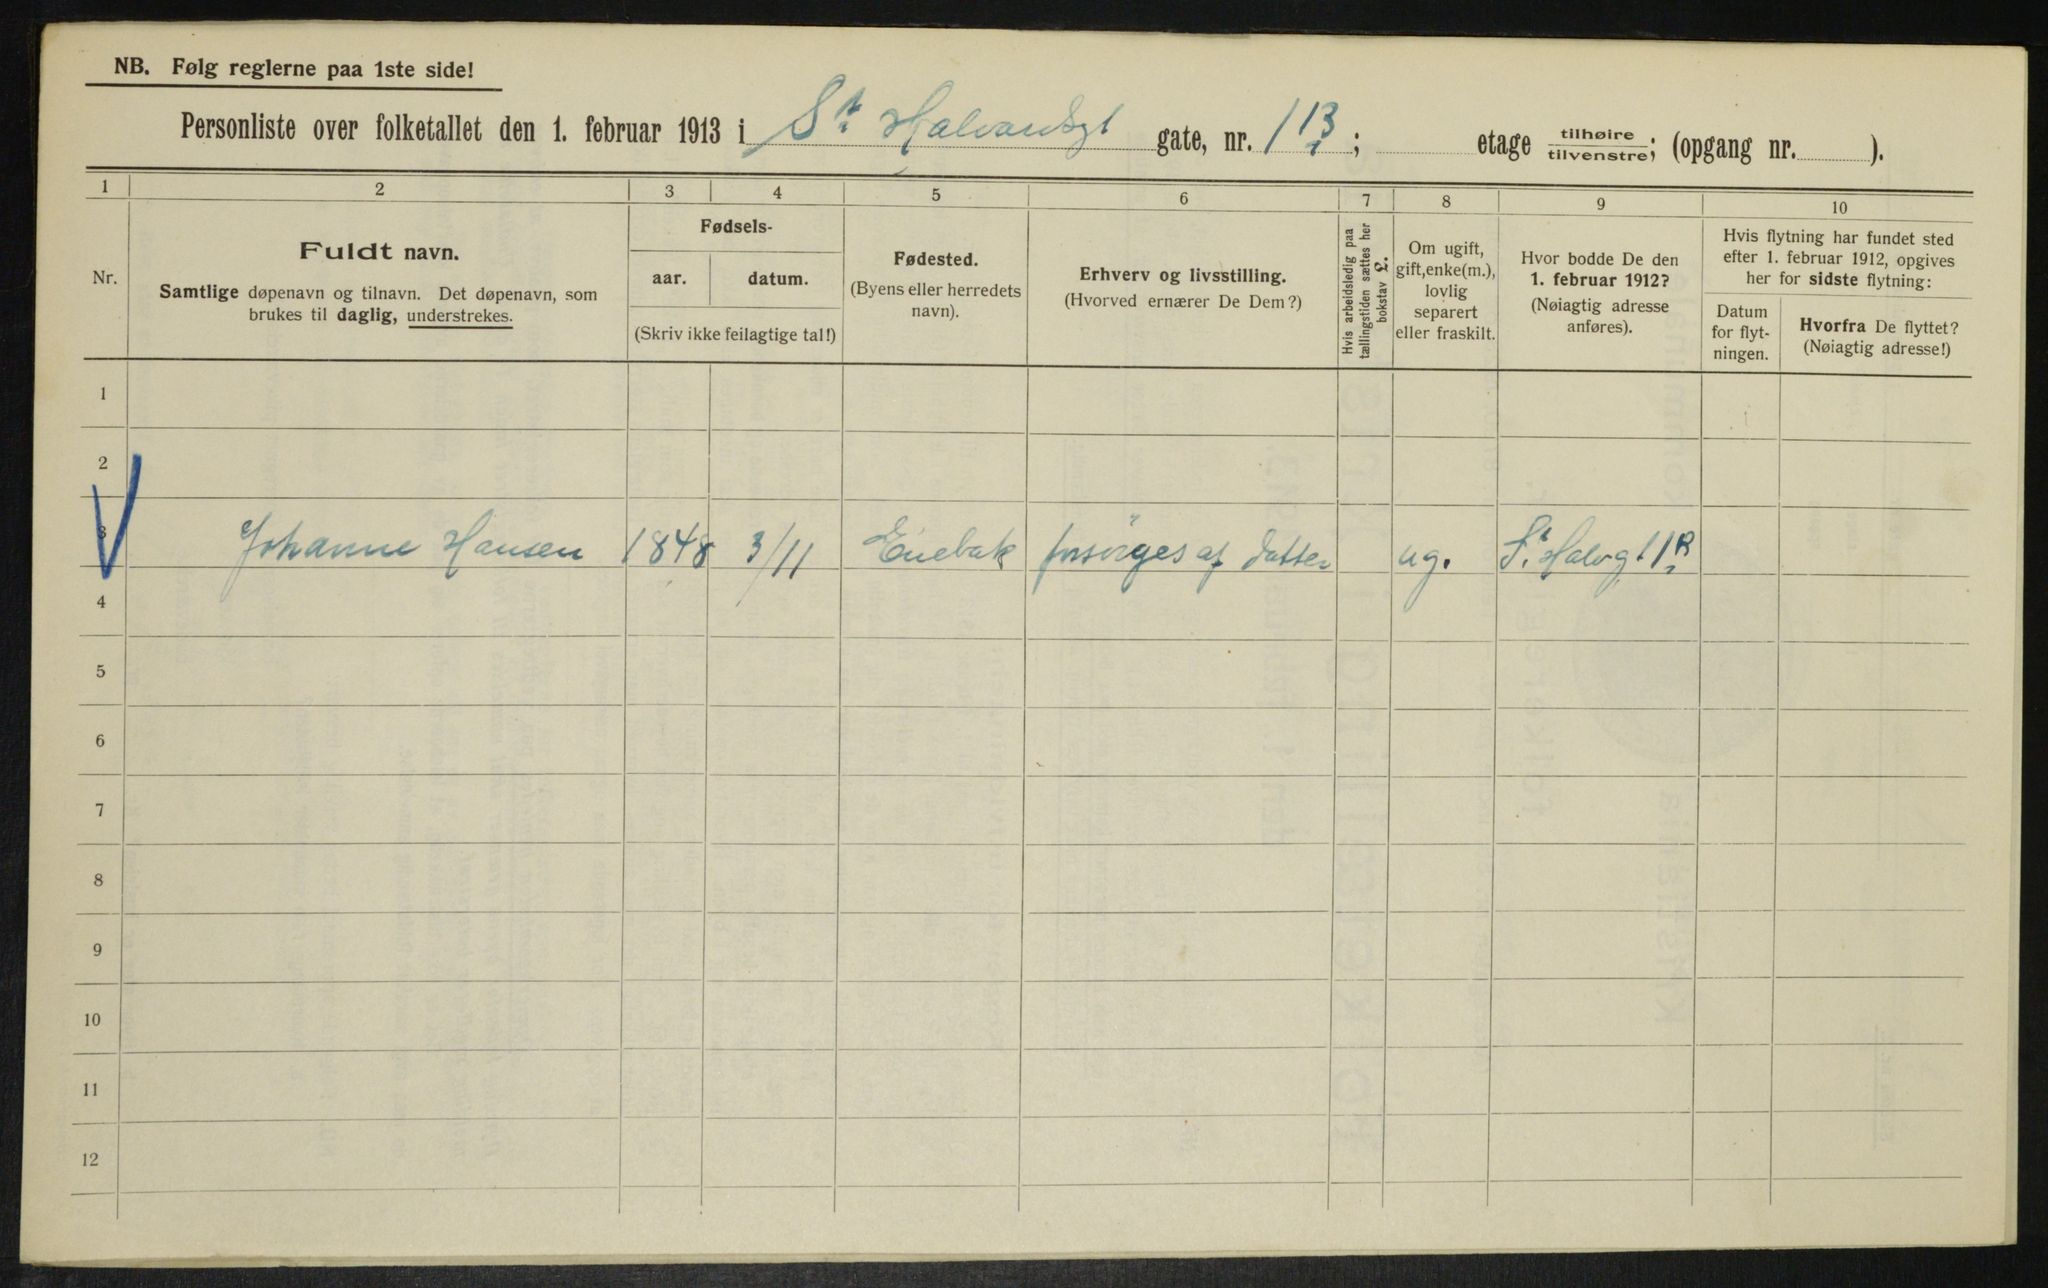 NB. Følg reglerne paa 1ste side!
Personliste over folketallet den 1. februar 1913 i St. Halvardsgt gate, nr. 1 B; etage tilhøire tilvenstre; (opgang nr. ).
1 2 3 4 5 6 7 8 9 10
Nr.
Fuldt navn.
Samtlige døpenavn og tilnavn. Det døpenavn, som
brukes til daglig, understrekes.
Fødsels-
aar. datum.
(Skriv ikke feilagtige tal!)
Fødested.
(Byens eller herredets
navn).
Erhverv og livsstilling.
(Hvorved ernærer De Dem?)
Hvis arbeidsledig paa
tællingstiden sættes her
bokstav £.
Om ugift,
gift, enke(m.),
lovlig
separert
eller fraskilt.
Hvor bodde De den
1. februar 1912?
(Nøiagtig adresse
anføres).
Hvis flytning har fundet sted
efter 1. februar 1912, opgives
her for sidste flytning:
Datum
for flyt-
ningen.
Hvorfra De flyttet?
(Nøiagtig adresse!)
1
2
3 Johanne Hansen 1848 3/11 Enebak forsörges af datter ug. St. Halvgt 1B
4
5
6
7
8
9
10
11
12